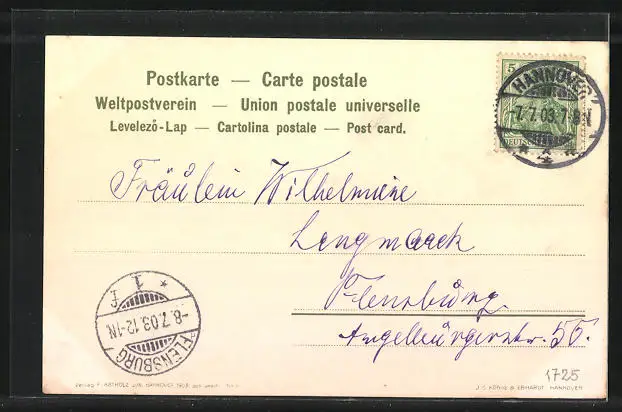 Postkarte — Carte postale
Weltpostverein — Union postale universelle
Levelező-Lap — Cartolina postale — Post card.
5
HANNOVER
7.7.03.7-8N
DEUTSCHES
Fräulein Wilhelmine
Lengmaack
Flensburg.
Angelburgerstr. 55.
* 1 f
-8.7.03.12-1N
FLENSBURG
1725
Verlag HANNOVER 1903
J. C. König & EBHARDT HANNOVER